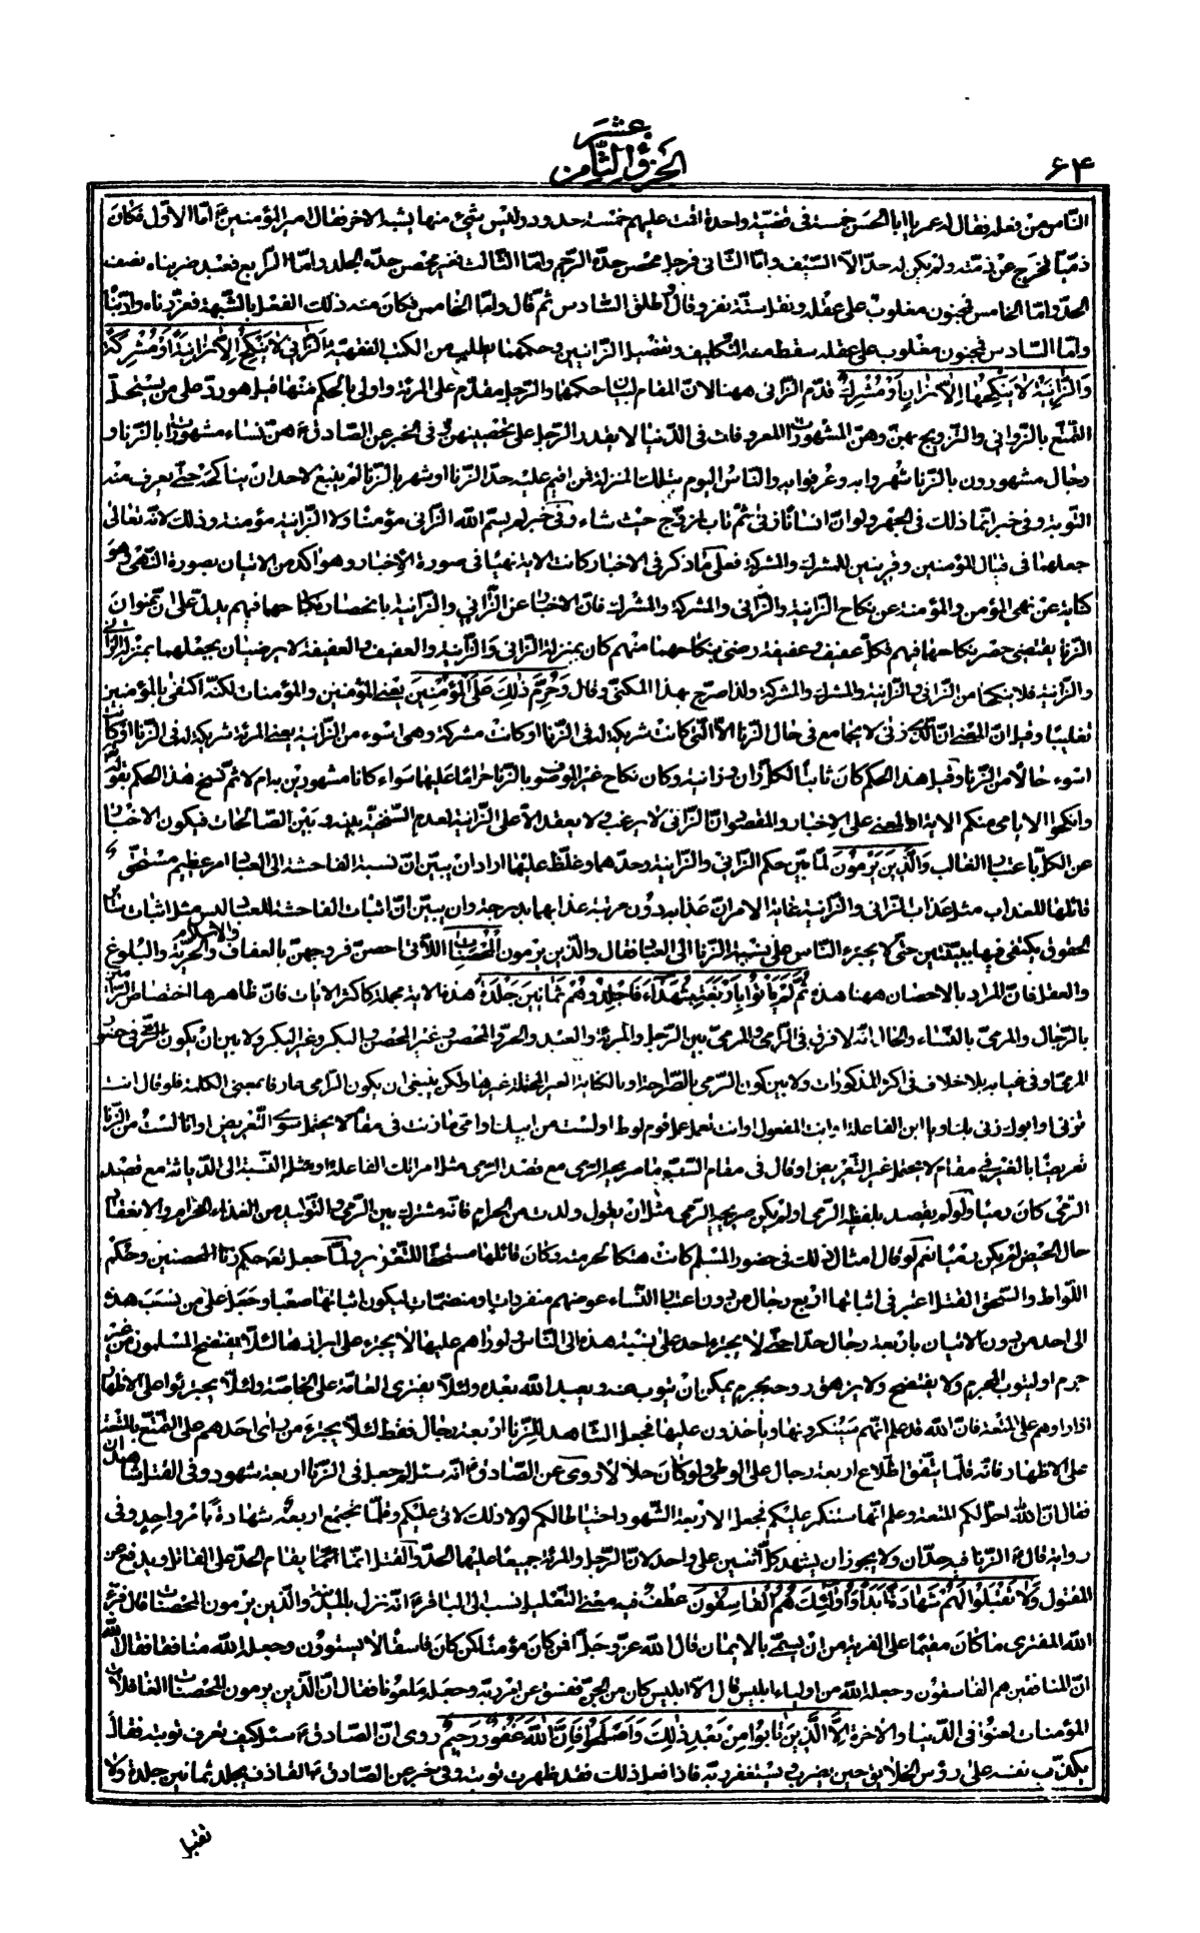 الجزؤ الثّامن عشر
۶۴
النّاس من فعله فقال له عمر يا ابا الحسن خمسة فى قضيّة واحدة اقمت عليهم خمسة حدود وليس شئ منها يشبه الاخر فقال امير المؤمنين ع امّا الاوّل فكان
ذمّيّا فخرج عن ذمّته ولم يكن له حدّ الّا السّيف وامّا الثّانى فرجل محصن حدّه الرّجم وامّا الثّالث فغير محصن حدّه الجلد وامّا الرّابع فعبد ضربناه نصف
الحدّ وامّا الخامس فمجنون مغلوب على عقله ونقل ستّة نفر وقال اطلق السّادس ثمّ قال وامّا الخامس فكان منه ذلك الفعل بالشّبهة فعزّرناه وادّبناه
وامّا السّادس فمجنون مغلوب على عقله سقط منه التّكليف وتفصيل الزّانيين وحكمهما يطلب من الكتب الفقهيّة الزّانى لا ينكح الّا زانية او مشركة
والزّانية لا ينكحها الّا زان او مشرك قدّم الزّانى ههنا لانّ المقام لبيان حكمهما والرّجل مقدّم على المرئة واولى بالحكم منها قيل هو ردّ على من يستحلّ
التمتّع بالزّوانى والتّزويج بهنّ وهنّ المشهورات المعروفات فى الدّنيا لا يقدر الرّجل على تحصينهنّ وفى الخبر عن الصّادق ع هنّ نساء مشهورات بالزّنا و
رجال مشهورون بالزّنا شهروا به وعرفوا به والنّاس اليوم بتلك المنزلة فمن اقيم عليه حدّ الزّنا او شهر بالزّنا لم ينبغ لاحد ان يناكحه حتّى يعرف منه
التّوبة وفى خبر انّما ذلك فى الجهر ولو انّ انسانا زنى ثمّ تاب تزوّج حيث شاء وفى خبر لم يسمّ الله الزّانى مؤمنا ولا الزّانية مؤمنة وذلك لانّه تعالى
جعلهما فى قبال المؤمنين وقرينين للمشرك والمشركة فعلى ما ذكر فى الاخبار كانت الاية نهيا فى صورة الاخبار وهو اكد من الاتيان بصورة النّهى وهو
كناية عن نهى المؤمن والمؤمنة عن نكاح الزّانية والزّانى والمشركة والمشرك فانّ الاخبار عن الزّانى والزّانية بانحصار نكاحهما فيهم يدلّ على ان عنوان
الزّنا يقتضى حصر نكاحهما فيهم فكلّ عفيف وعفيفة رضى بنكاحهما منهم كان بمنزلة الزّانى والزّانية والعفيف والعفيفة لا يرضيان بجعلهما بمنزلة الزّانى
والزّانية فلا ينكحا من الزّانى والزّانية والمشرك والمشركة ولذا صرّح بهذا المكنّى وقال وحرّم ذلك على المؤمنين يعنى المؤمنين والمؤمنات لكنّه اكتفى بالمؤمنين
تغليبا وقيل انّ المعنى انّ الّذى زنى لا يجامع فى حال الزّنا الّا الّتى كانت شريكة له فى الزّنا او كانت مشركة وهى اسوء من الزّانية يعنى المرئة شريكة له فى الزّنا او كانت
اسوء حالا من الزّنا وقيل هذا الحكم كان ثابتا لكلّ زان وزانية وكان نكاح غير الموصوف بالزّنا حراما عليهما سواء كانا مشهورين به ام لا ثمّ نسخ هذا الحكم بقوله
وانكحوا الايامى منكم الاية او المعنى على الاخبار والمقصود انّ الزّانى لا يرغب ولا يعقد الّا على الزّانية لعدم السّنخيّة بينه وبين الصّالحات فيكون الاخبار
عن الكلّ باعتبار الغالب والّذين يرمون لمّا بيّن حكم الزّانى والزّانية وحدّهما وغلّظ عليهما اراد ان يبيّن انّ نسبة الفاحشة الى العباد امر عظيم مستحقّ
قائلها للعذاب مثل عذاب الزّانى والزّانية غاية الامر انّ عذابه دون مرتبة عذابهما بدرجة وان يبيّن انّ اثبات الفاحشة للعباد ليس مثل اثبات سائر
الحقوق يكتفى فيها ببيّنتين حتّى لا يجترء النّاس على نسبة الزّنا الى العباد فقال والّذين يرمون المحصنات اللّاتى احصنّ فروجهنّ بالعفاف والاسلام والحرّيّة والبلوغ
والعقل فانّ المراد بالاحصان ههنا هذه ثمّ لم يأتوا باربعة شهداء فاجلدوهم ثمانين جلدة هذه الاية مجملة كاكثر الايات فانّ ظاهرها اختصاص الرّامين
بالرّجال والمرمىّ بالنّساء والحال انّه لا فرق فى الرّامى والمرمىّ بين الرّجل والمرئة والعبد والحرّ والمحصن وغير المحصن والبكر وغير البكر ولا بين ان يكون الرّمى فى حضور
المرمىّ او فى غيابه بلا خلاف فى اكثر المذكورات ولا بين كون الرّمى بالصّراحة او بالكناية الغير المحتملة غيرها ولكن ينبغى ان يكون الرّامى عارفا بمعنى الكلمة فلو قال انت
تزنى او ابوك زنى بامّك ويا ابن الفاعلة او انت المفعول او انت تعمل عمل قوم لوط او لست من ابيك او امّى ما زنت فى مقام لا يحتمل سوى التّعريض او انا لست من الزّنا
تعريضا بالغير فى مقام لا يحتمل غير التّعريض او قال فى مقام السّبّ ما صريحه الرّمى مع قصد الرّمى مثل امرأتك الفاعلة او مثل النّسبة الى الدّياثة مع قصد
الرّمى كان رميا ولو لم يقصد بلفظه الرّمى او لم يكن صريحه الرّمى مثل ان يقول ولدت من الحرام فانّه مشترك بين الرّمى والتّوليد من الغذاء الحرام والانعقاد
حال الحيض لم يكن رميا نعم لو قال امثال ذلك فى حضور المسلم كانت هتكا لحرمته وكان قائلها مستحقّا للتّعزير ولمّا جعل تعالى حكم زنا المحصنين وحكم
اللّواط والسّحق القتل اعتبر فى اثباتها اربع رجال من دون اعتبار النّساء عوضهم منفردات او منضمّات ليكون اثباتها صعبا وجعل على من نسب هذه
الى احد من دون الاتيان باربعة رجال حدّا حتّى لا يجترء احد على نسبة هذه الى النّاس ولو راهم عليها لا يجترء على ابرازها لئلّا يفتضح المسلمون من غير
جرم او ليتوب المجرم ولا يفتضح ولا يزهق روح مجرم يمكن ان يتوب عنه ويعبد الله بعده ولئلّا يفترى العامّة على الخاصّة ولئلّا يجترئوا على الاظهار
اذا راوهم على المتعة فانّ الله قد علم انّهم سينكرونها ويأخذون عليها فجعل الشّاهد للزّنا اربعة رجال فقط لئلّا يجترء من راى احدهم على التّمتّع بالمتعة
على الاظهار فانّه قلّما يتّفق اطّلاع اربعة رجال على الوطى ولو كان حلالا روى عن الصّادق ع انّه سئل لم جعل فى الزّنا اربعة شهود وفى القتل شاهدان
فقال انّ الله احلّ لكم المتعة وعلم انّها ستنكر عليكم فجعل الاربعة الشّهود احتياطا لكم لولا ذلك لاتى عليكم وقلّما تجتمع اربعة شهادة بامر واحد وفى
رواية قال ع الزّنا فيه حدّان ولا يجوز ان يشهد كلّ اثنين على واحد لانّ الرّجل والمرئة جميعا عليهما الحدّ والقتل انّما يقام الحدّ على القاتل ويدفع عن
المقتول ولا تقبلوا لهم شهادة ابدا واولئك هم الفاسقون عطف فيه معنى التّعليل نسب الى الباقر ع انّه نزل بالمدينة والّذين يرمون المحصنات قال فبرّء
الله المفترى ما كان مقيما على الفرية من ان يسمّى بالايمان قال الله عزّ وجلّ افمن كان مؤمنا كمن كان فاسقا لا يستوون وجعله الله منافقا فقال الله
انّ المنافقين هم الفاسقون وجعله الله من اولياء ابليس قال الّا ابليس كان من الجنّ ففسق عن امر ربّه وجعله ملعونا فقال انّ الّذين يرمون المحصنات الغافلات
المؤمنات لعنوا فى الدّنيا والاخرة الّا الّذين تابوا من بعد ذلك واصلحوا فانّ الله غفور رحيم روى انّ الصّادق ع سئل كيف تعرف توبته فقال
يكذّب نفسه على رؤس الخلايق حين يضرب ويستغفر ربّه فاذا فعل ذلك فقد ظهرت توبته وفى خبر عن الصّادق ع القاذف يجلد ثمانين جلدة ولا
تقبل